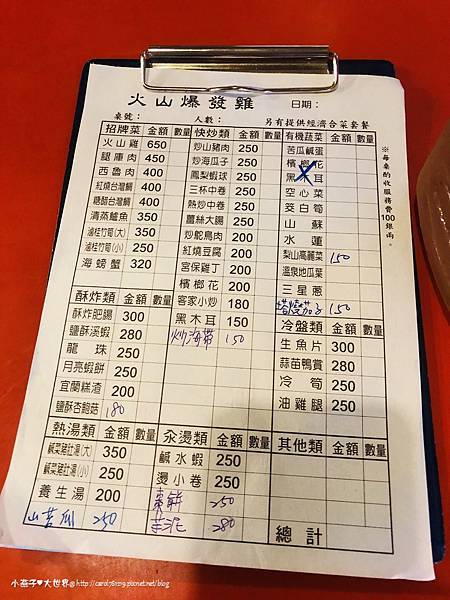 火山爆發雞 日期：
桌號： 人數： 另有提供經濟合菜套餐
招牌菜 金額 數量
火山雞 650
腿庫肉 450
西魯肉 400
紅燒台灣鯛 400
糖醋台灣鯛 400
清蒸鱸魚 350
滷桂竹筍(大) 350
滷桂竹筍(小) 250
海螃蟹 320
酥炸類 金額 數量
酥炸肥腸 300
鹽酥溪蝦 280
龍珠 250
月亮蝦餅 250
宜蘭糕渣 200
鹽酥杏鮑菇 180
熱湯類 金額 數量
鹹菜豬肚湯(大) 350
鹹菜豬肚湯(小) 250
養生湯 200
山苦瓜 250
快炒類 金額 數量
炒山豬肉 250
炒海瓜子 250
鳳梨蝦球 250
三杯中卷 250
熱炒中卷 250
薑絲大腸 250
炒鴕鳥肉 200
紅燒豆腐 200
宮保雞丁 200
檳榔花 200
客家小炒 180
黑木耳 150
炒海帶 150
汆燙類 金額 數量
鹹水蝦 250
燙小卷 250
棗餅 250
芋泥 280
有機蔬菜 金額 數量
苦瓜鹹蛋
檳榔花
黑木耳
空心菜
茭白筍
山蘇
水蓮
梨山高麗菜 150
溫泉地瓜葉
三星蔥
塔燒茄子 150
冷盤類 金額 數量
生魚片 300
蒜苗鴨賞 280
冷筍 250
油雞腿 250
其他類 金額 數量
總計
※每桌酌收服務費100銀兩。
小燕子♥大世界@http://carol76129.pixnet.net/blog